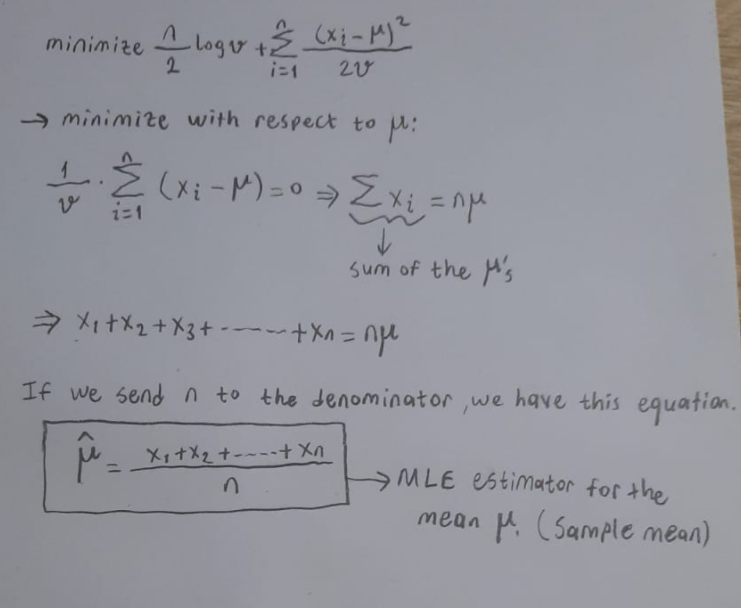 minimize n/2 log v + Σ_{i=1}^{n} (xi - μ)²/2v
→ minimize with respect to μ:
1/v · Σ_{i=1}^{n} (xi - μ) = 0 ⇒ Σ xi = nμ
↓
sum of the μ's
⇒ x1 + x2 + x3 + ------ + xn = nμ
If we send n to the denominator, we have this equation.
μ̂ = x1 + x2 + ----- + xn / n → MLE estimator for the
mean μ. (Sample mean)